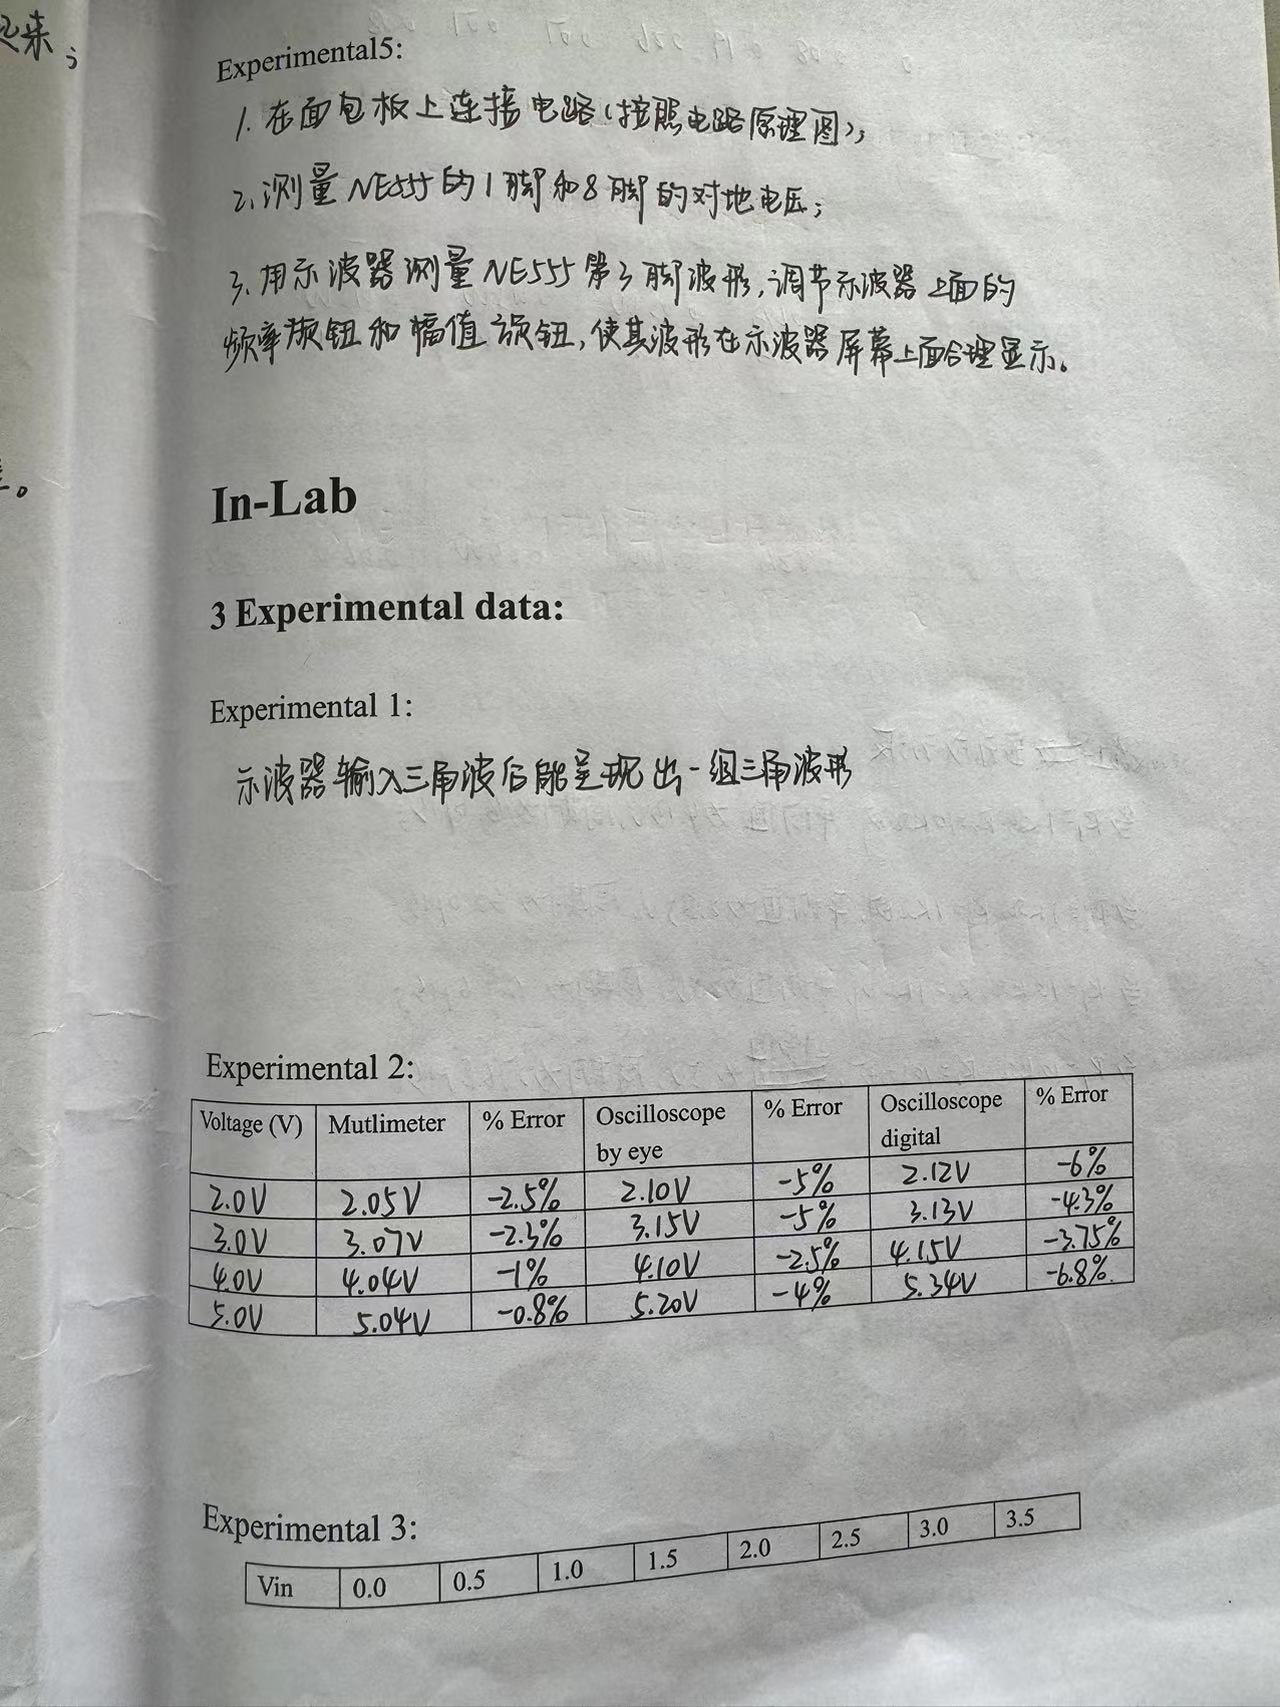 起来；
Experimental5:
1. 在面包板上连接电路(按照电路原理图)；
2、测量NE555的1脚和8脚的对地电压；
3、用示波器测量NE555第3脚波形,调节示波器上面的
频率旋钮和幅值旋钮,使其波形在示波器屏幕上面合理显示。
In-Lab
3 Experimental data:
Experimental 1:
示波器输入三角波后能呈现出一组三角波形
Experimental 2:
Voltage (V) Mutlimeter % Error Oscilloscope by eye % Error Oscilloscope digital % Error
2.0V 2.05V -2.5% 2.10V -5% 2.12V -6%
3.0V 3.07V -2.3% 3.15V -5% 3.13V -4.3%
4.0V 4.04V -1% 4.10V -2.5% 4.15V -3.75%
5.0V 5.04V -0.8% 5.20V -4% 5.34V -6.8%
Experimental 3:
Vin 0.0 0.5 1.0 1.5 2.0 2.5 3.0 3.5